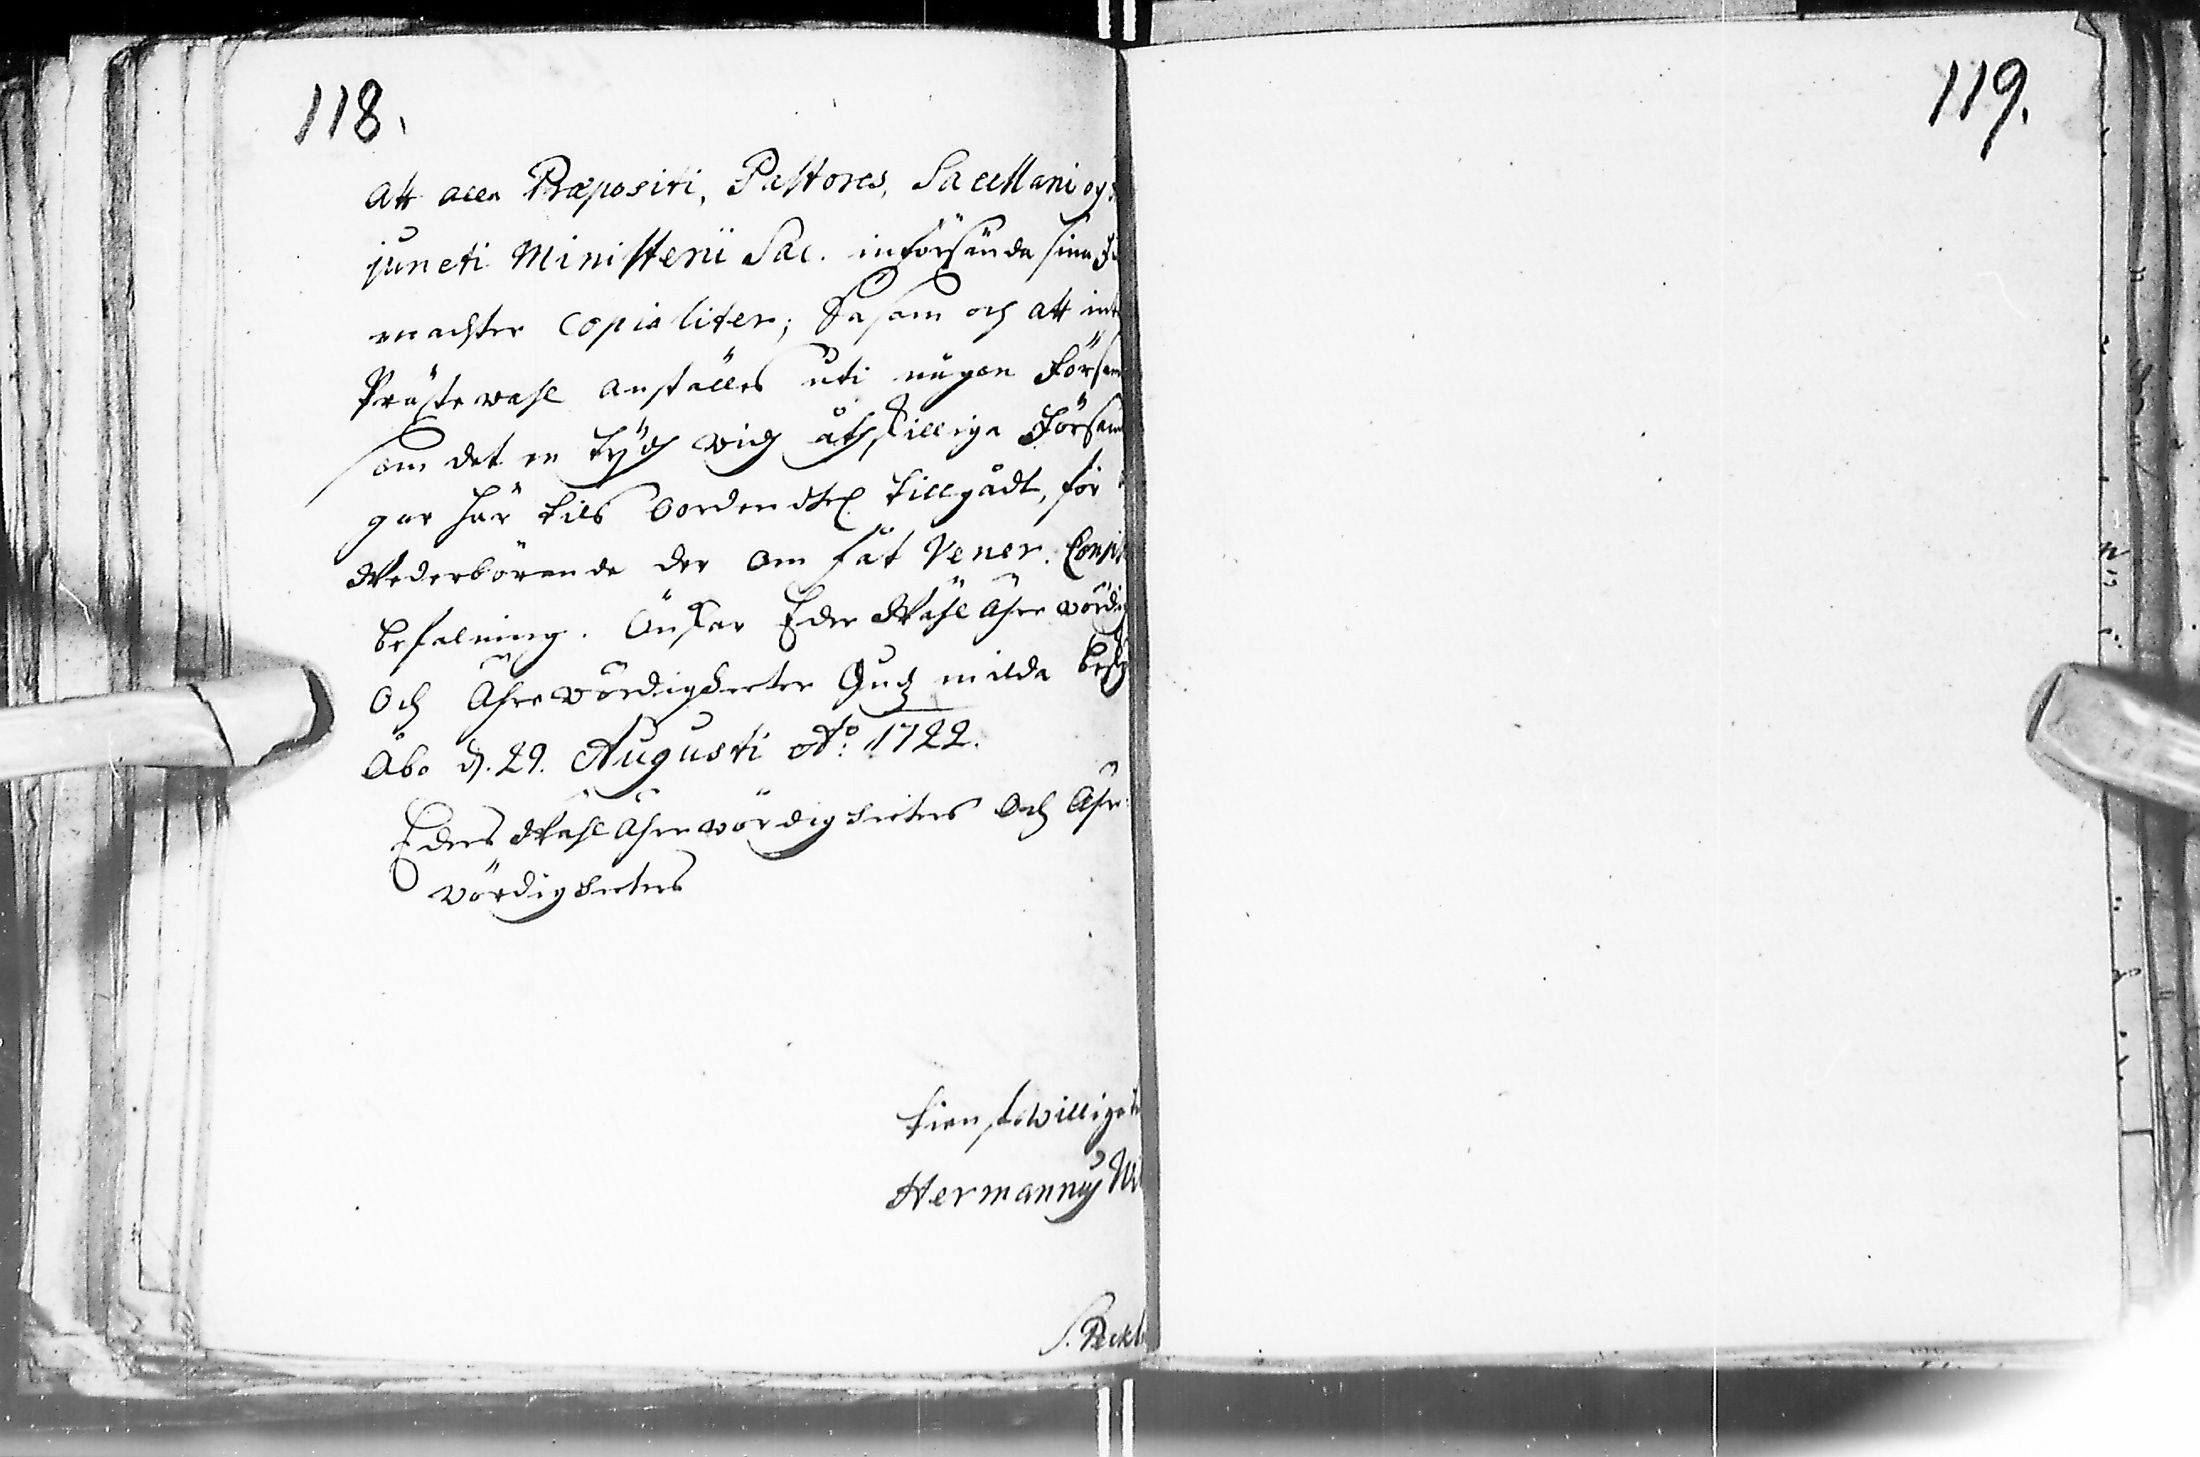 118.
Att alla Præpositi, Pastores, Sacellani og
juncti Ministerii Sac. införsända sina
machter copialiter; Så som och att int
Prästewahl anställes uti någon Försam
som det en tijdh widh åthskilliga Försam
gar här tils ordentel tillgådt, för
Wederbörande der om fåt Vener. Consi
befalning. Önskar Eder Wähl Ährewördig
Och Ährewördigheeter Gudz milda besk
Åbo d. 29. Augusti Ao: 1722.
Eders Wähl Ährewördigheeters Och Ähre
wördigheeters
tienstwilligste
Hermannus Wi
S. Peckl
119.